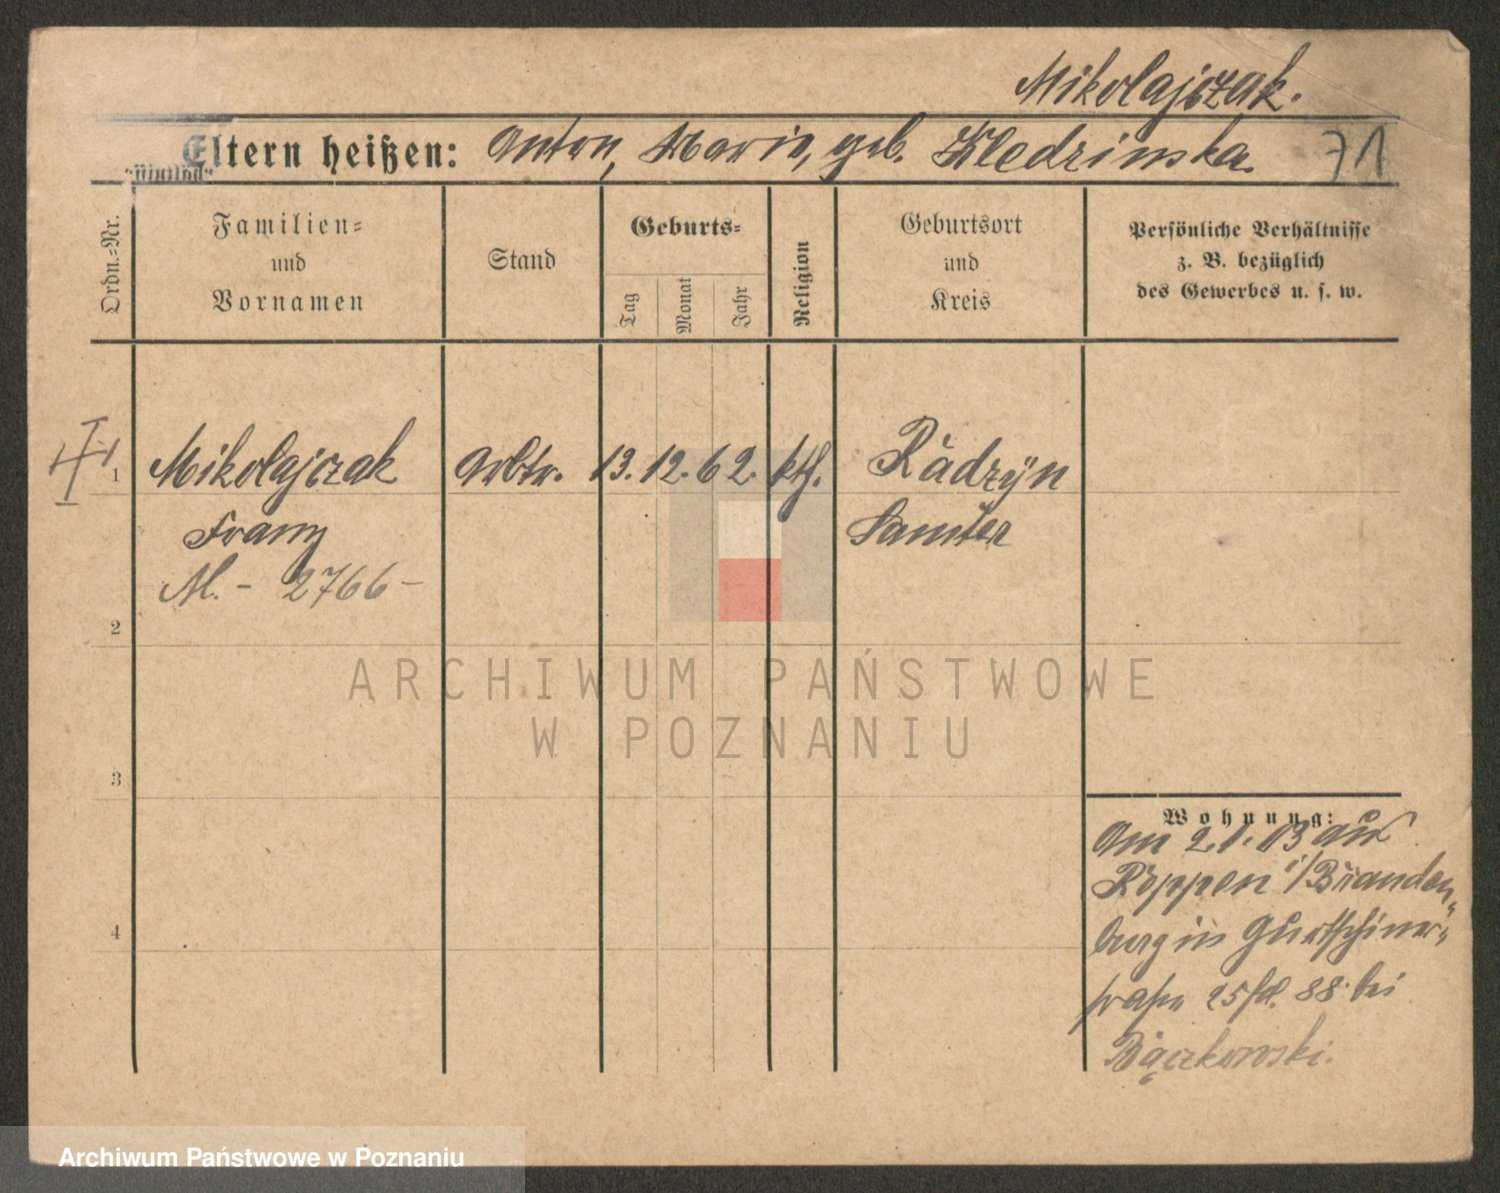 Mikolajczak.
Eltern heißen: Anton, Marie, geb. Kledzinska.
71
Ordn.=Nr.
Familien=
und
Vornamen
Stand
Geburts=
Tag
Monat
Jahr
Religion
Geburtsort
und
Kreis
Persönliche Verhältnisse
z. B. bezüglich
des Gewerbes u. s. w.
1 Mikolajczak Arbtr. 13. 12. 62. kth. Radzyn
Franz Samter
M. - 2766 -
2
3
4
Wohnung:
Am 2.1.03 aus
Röppen i/Branden„
burg in Gurtschiner„
straße 25 88 bei
Bączkowski.
ARCHIWUM PAŃSTWOWE
W POZNANIU
Archiwum Państwowe w Poznaniu